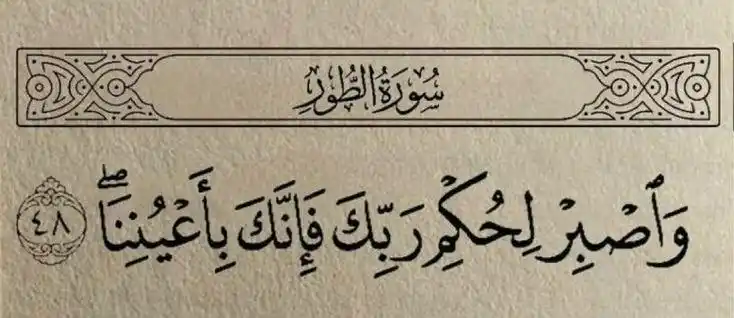 سُورَةُ الطُّورِ
وَٱصۡبِرۡ لِحُكۡمِ رَبِّكَ فَإِنَّكَ بِأَعۡيُنِنَاۖ ٤٨